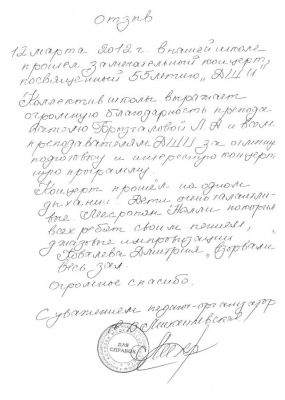 Отзыв
12 марта 2012 г. в нашей школе
прошел замечательный концерт,
посвященный 55летию „ДШИ"
Коллектив школы выражает
огромную благодарность препода
вателю Л.А и всем
преподавателям ДШИ за отличн
подготовку и интересную концерт
ную программу.
Концерт прошёл на одном
дыхании. Дети очень талантли-
вые. Нелли покорила
всех ребят своим пением,
джазовые импровизации
Ковалева Дмитрия „взорвали
весь зал.
Огромное спасибо.
С уважением педагог-организатор
ДЛЯ
СПРАВОК